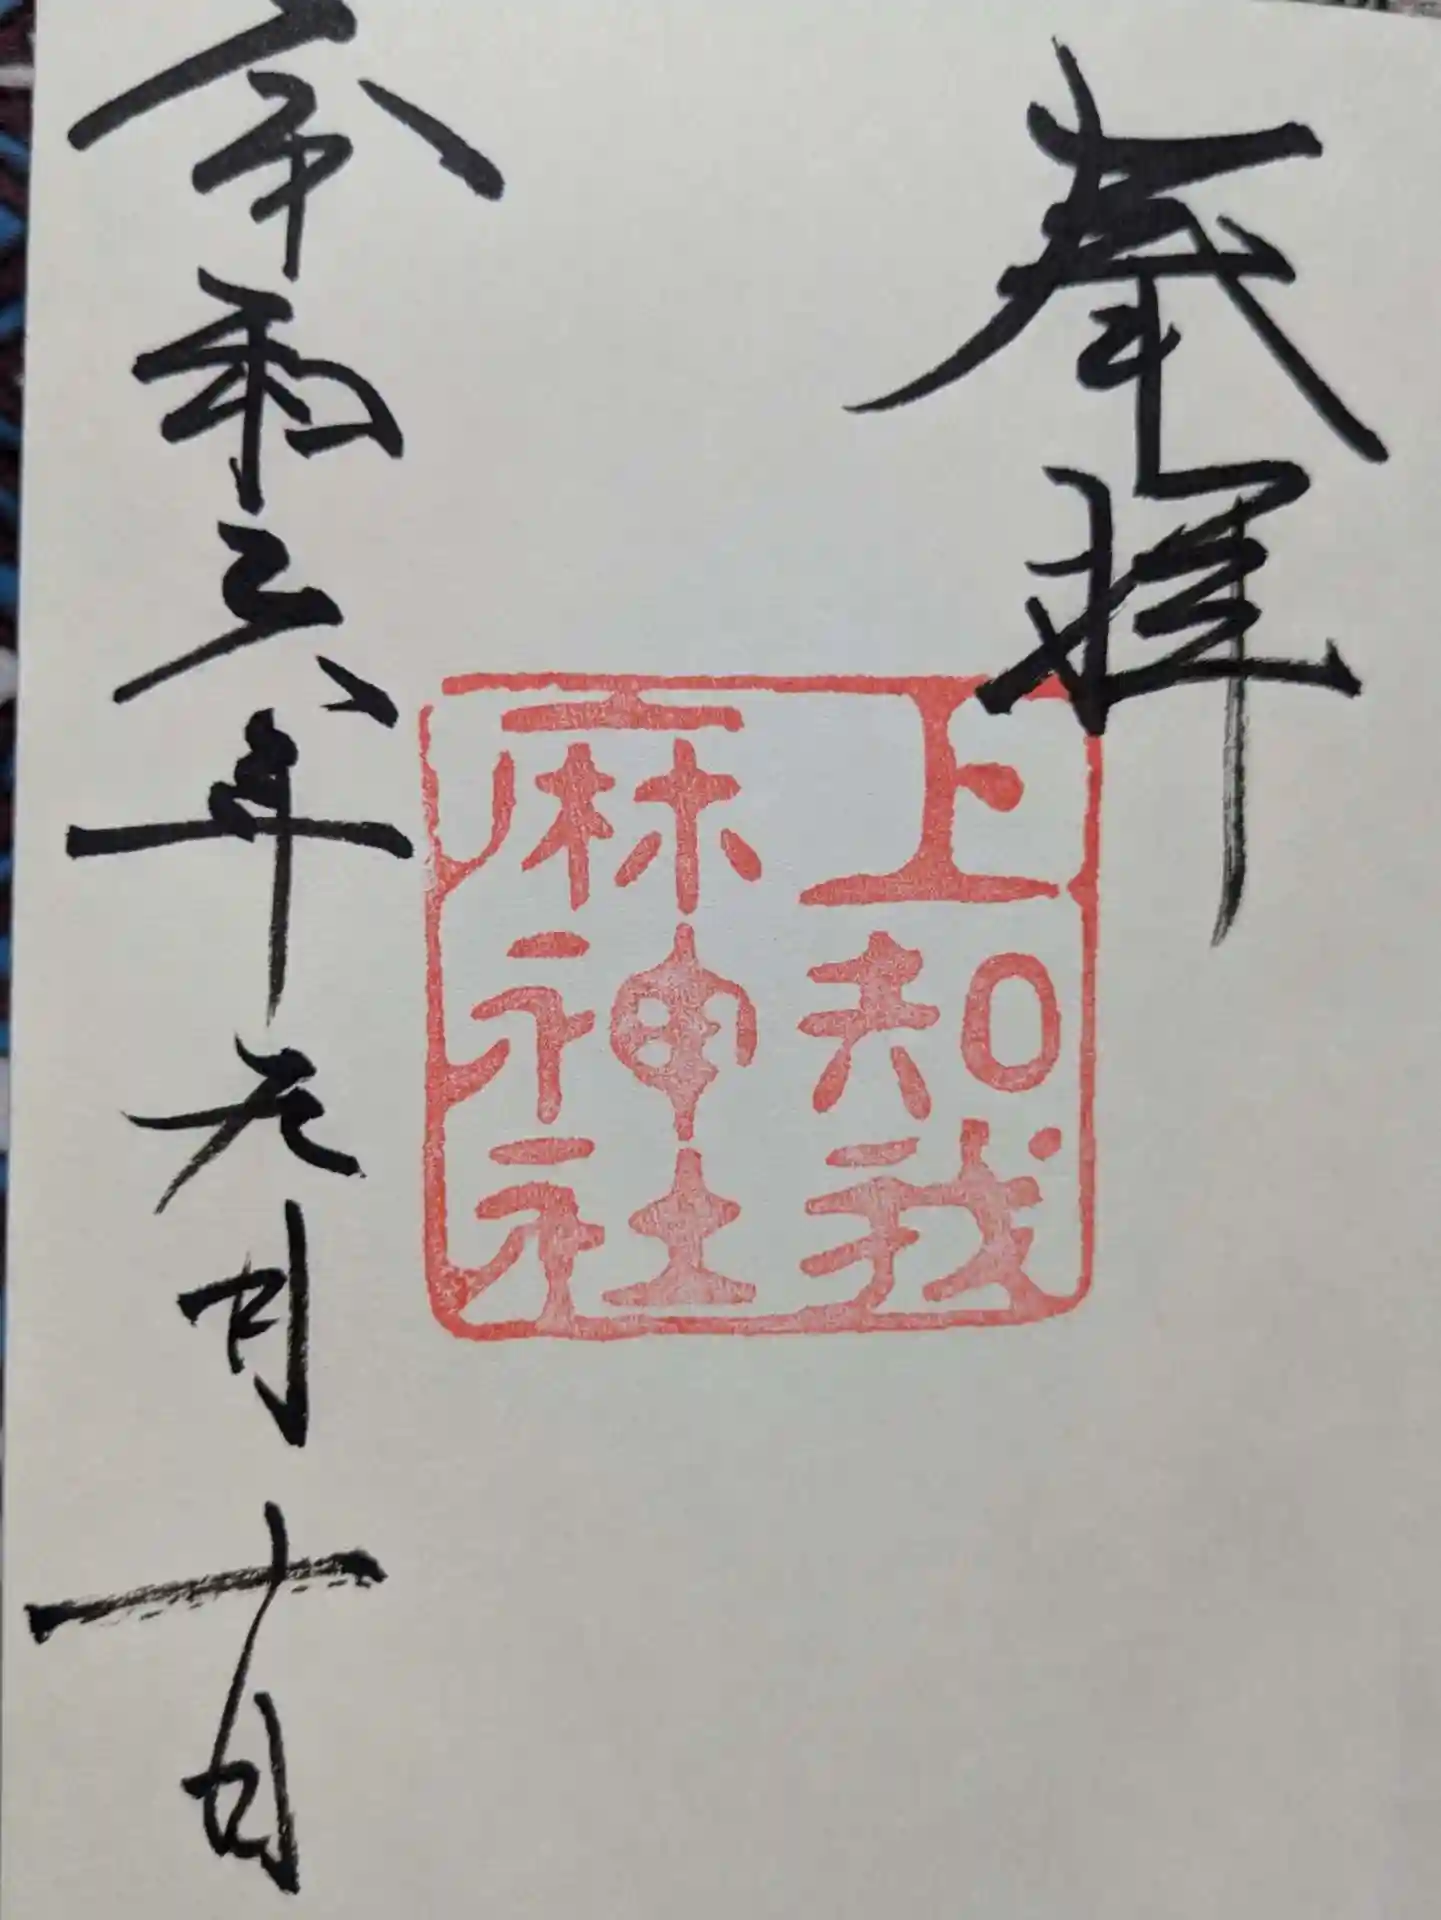 奉拝
上知我
麻神社
令和六年元月十日